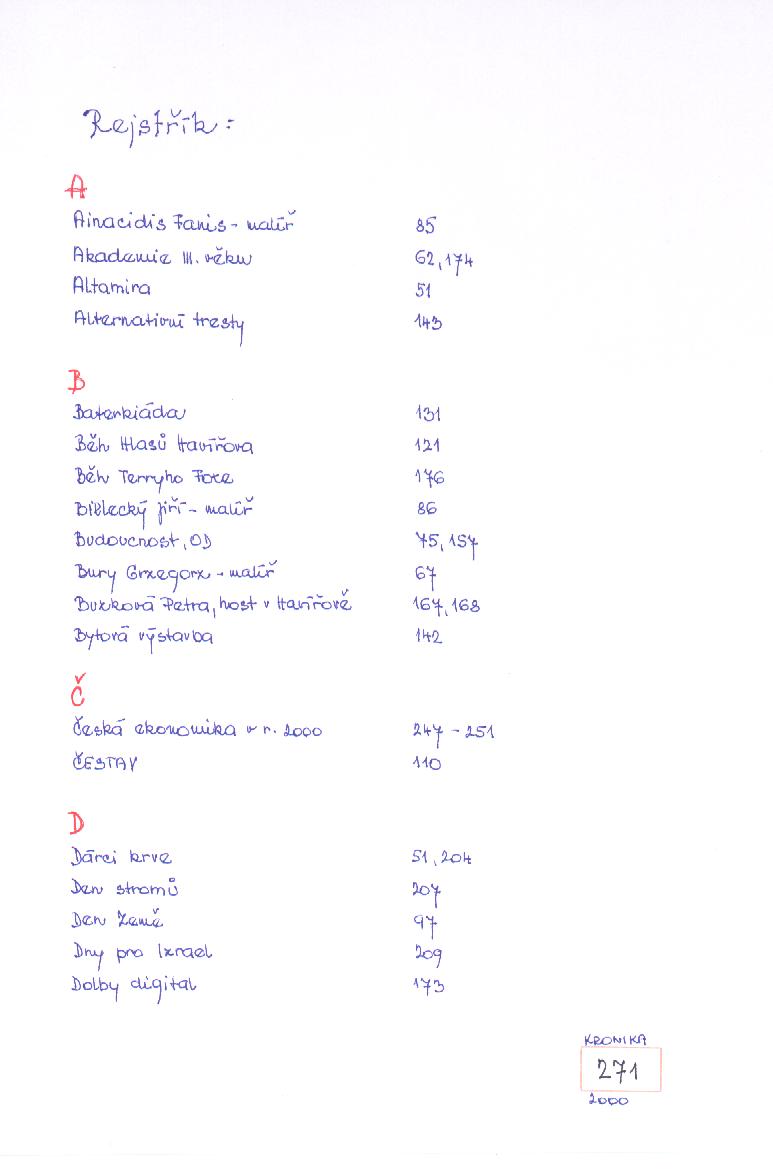 Rejstřík:
A
Ainacidis Fanis - malíř 85
Akademie III. věku 62, 174
Altamira 51
Alternativní tresty 143
B
Baterkiáda 131
Běh Hlasů Havířova 121
Běh Terryho Foxe 176
Bielecký Jiří - malíř 86
Budoucnost, OD 75, 157
Bury Grzegorz - malíř 67
Buzková Petra, host v Havířově 167, 168
Bytová výstavba 142
Č
Česká ekonomika v r. 2000 247 - 251
ČESTAV 110
D
Dárci krve 51, 204
Den stromů 207
Den Země 97
Dny pro Izrael 209
Dolby digital 173
KRONIKA
271
2000